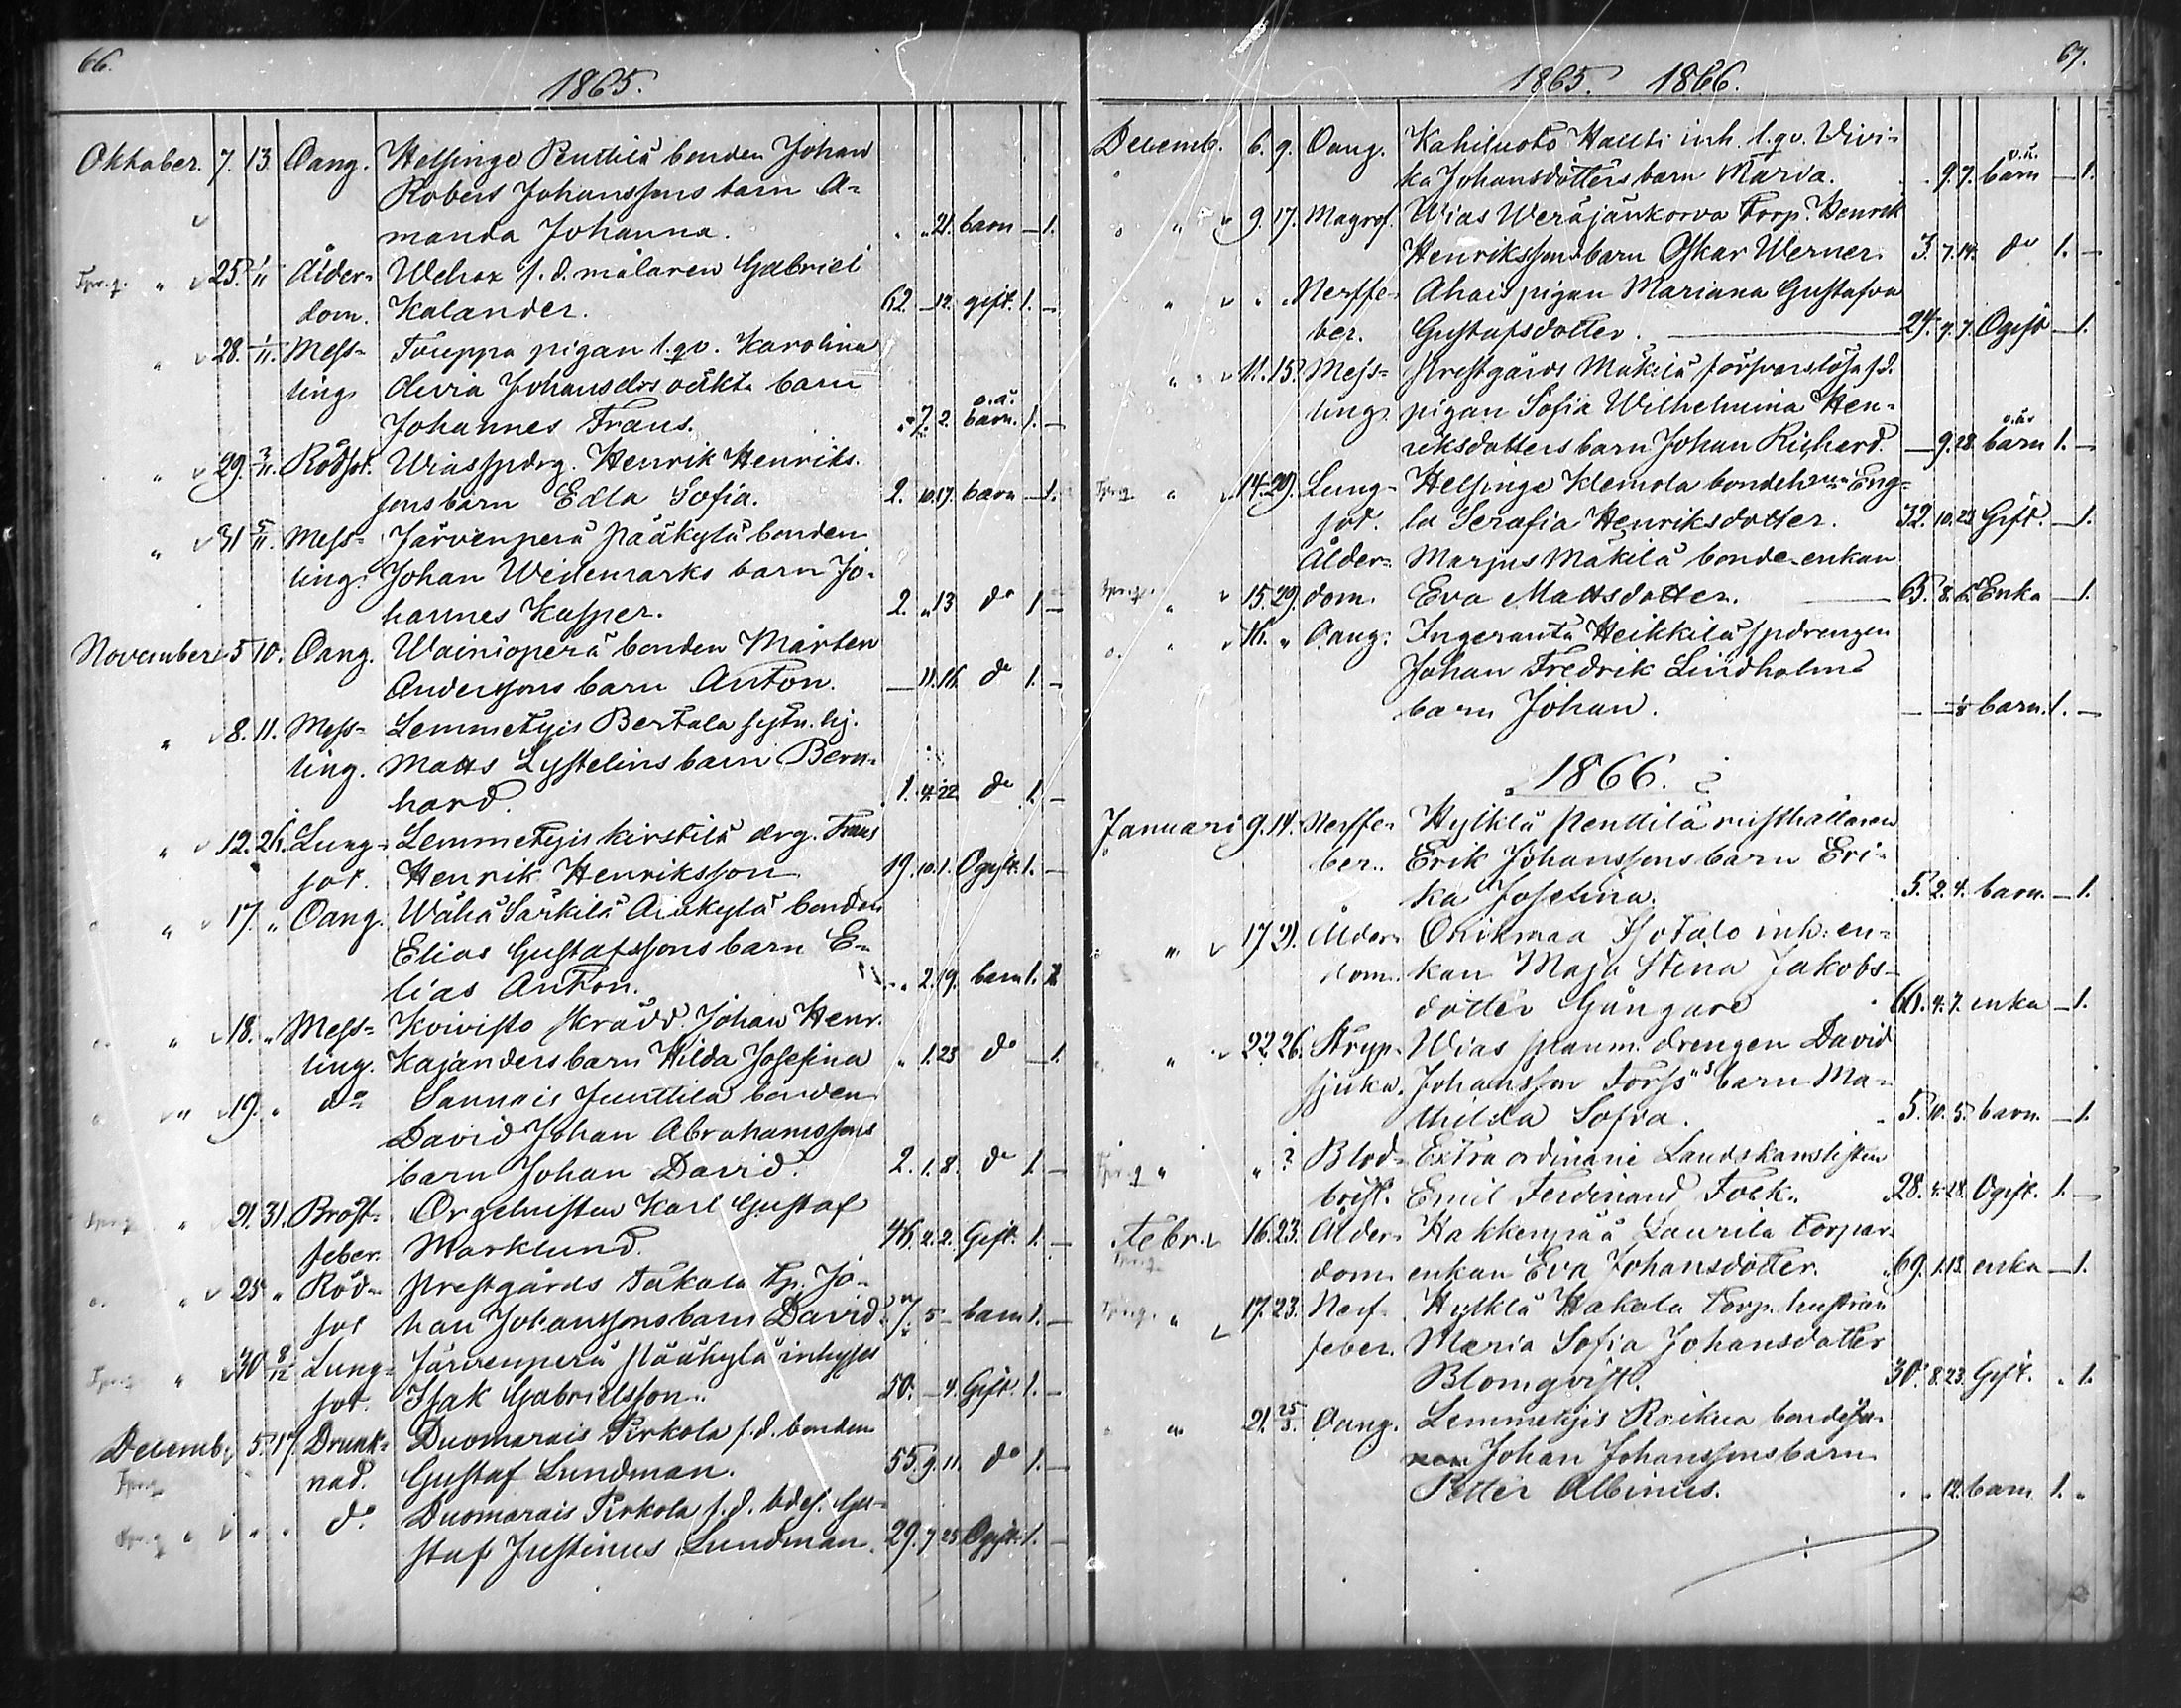 66.
1865.
Oktober. 7. 13. Oang. Helsinge Penttilä bonden Johan
Roberts Johanssons barn A-
manda Johanna. " " 21. barn — 1.
" 25. 1/11 Ålder- Wehox f.d. målaren Gabriel
dom. Kalander. 62. — 12. gift. 1. —
" 28. 1/11. Mess- Touppa pigan l.qv. Karolina
ling. Olivia Johansdrs oäkta barn
o.ä.
Johannes Frans. " 7. 2. barn. 1. —
" 29. 3/11. Rödsot. Wias spdrg. Henrik Henriks-
sons barn Edla Sofia. 2. 10. 17. barn — 1.
" 31 5/11. Mess- Järvenperä Pääkylä bonden
ling. Johan Widemarks barn Jo-
hannes Kasper. 2. " 13 do 1 —
November 5 10. Oang. Wainionperä bonden Mårten
Anderssons barn Anton. — 11. 16. do 1. —
" 8. 11. Mess- Lemmetyis Bertala sytn. hj.
ling. Matts Lystelins barn Bern-
hard. 1. 4. 22. do 1. —
" 12. 26. Lung- Lemmetyis Kirstilä drg. Frans
sot. Henrik Henriksson 19. 10. 1. Ogift. 1. —
" 17. " Oang. Wähä Särkilä Alikylä bonden
Elias Gustafssons barn E-
lias Anton. " 2. 19. barn 1.
" 18. " Mess- Koivisto skrädd. Johan Henr.
ling. Kajanders barn Hilda Josefina " 1. 23 do — 1.
" 19. " do Sannais Junttila bonden
David Johan Abrahamssons
barn Johan David. 2. 1. 8. do 1. —
" 21. 31. Bröst- Orgelnisten Karl Gustaf
feber. Marklund. 46. 2. 2. Gift. 1. —
" 25 " Röd- Prestgårds Takala Tp. Jo-
sot han Johanssons barn David " 7. 5 — barn 1. —
" 30 8/12 Lung- Järvenperä Pääkylä inhyses
sot. Isak Gabrielsson. 50. — 4. Gift. 1. —
Decemb. 5. 17. Drunk- Duomarais Pirkola f.d. bonden
nad. Gustaf Lundman. 55. 9. 11. do 1. —
" " do Duomarais Pirkola f.d. bdes. Gu-
staf Justinus Lundman. 29. 7 25 Ogift. 1. —
67.
1865. 1866.
Decemb. 6. 9. Oang. Kahiluoto Hallti inh. l.qv. Vivi-
o.ä.
ka Johansdotters barn Maria. " 9. 7. barn — 1.
" 9. 17. Magref. Wias Weräjänkorva Torp. Henrik
Henrikssons barn Oskar Werner. 3. 7. 14. do 1. —
" " Nerffe- Ahais pigan Mariana Gustafva
ber. Gustafsdotter. 24. 9. 7. Ogift — 1.
" 11. 15. Mess- Prestgårds Mäkilä försvarslösa f.d.
ling. pigan Sofia Wilhelmina Hen-
o.ä.
riksdotters barn Johan Richard. — 9. 28. barn 1. —
" 14. 29. Lung- Helsinge Klemola bondeh:n Eng-
sot. la Serafia Henriksdotter. 32. 10. 23 Gift. — 1.
Ålder- Marjus Mäkilä bonde-enkan
" 15. 29. dom. Eva Mattsdotter. 65. 8. 6. Enka — 1.
" 16. " Oang. Ingeranta Heikkilä spdrengen
Johan Fredrik Lindholms
barn Johan. — — barn. 1. —
1866.
Januari 9. 14. Nerffe- Hylklä Penttilä rusthållaren
ber. Erik Johanssons barn Eri-
ka Josefina. 5. 2. 4. barn. — 1.
" 17 21. Ålder- Orikmaa Isotalo inh: en-
dom. kan Maja Stina Jakobs-
dotter Gångare 66. 4. 7. enka — 1.
" 22. 26. Stryp- Wias plaum. drengen David
sjuka. Johansson Forss's barn Ma-
thilda Sofia. 5. 10. 5. barn. — 1.
" " ? Blod- Extra ordinarie Landskanslisten
brist. Emil Ferdinand Fock. 28. 4. 28. Ogift. 1. —
Febr. 16. 23. Ålder- Hakkenpää Laurila torpar-
dom. enkan Eva Johansdotter. 69. 1. 13. enka — 1.
" 17. 23. Nerf- Hylklä Hakala Torp. hustrun
feber. Maria Sofia Johansdotter
Blomqvist. 30. 8. 23. Gift. " 1.
" 21. 25/3. Oang. Lemmetyis Roikua bondeso-
nen Johan Johanssons barn
Petter Albinus. " " 12. barn 1. "